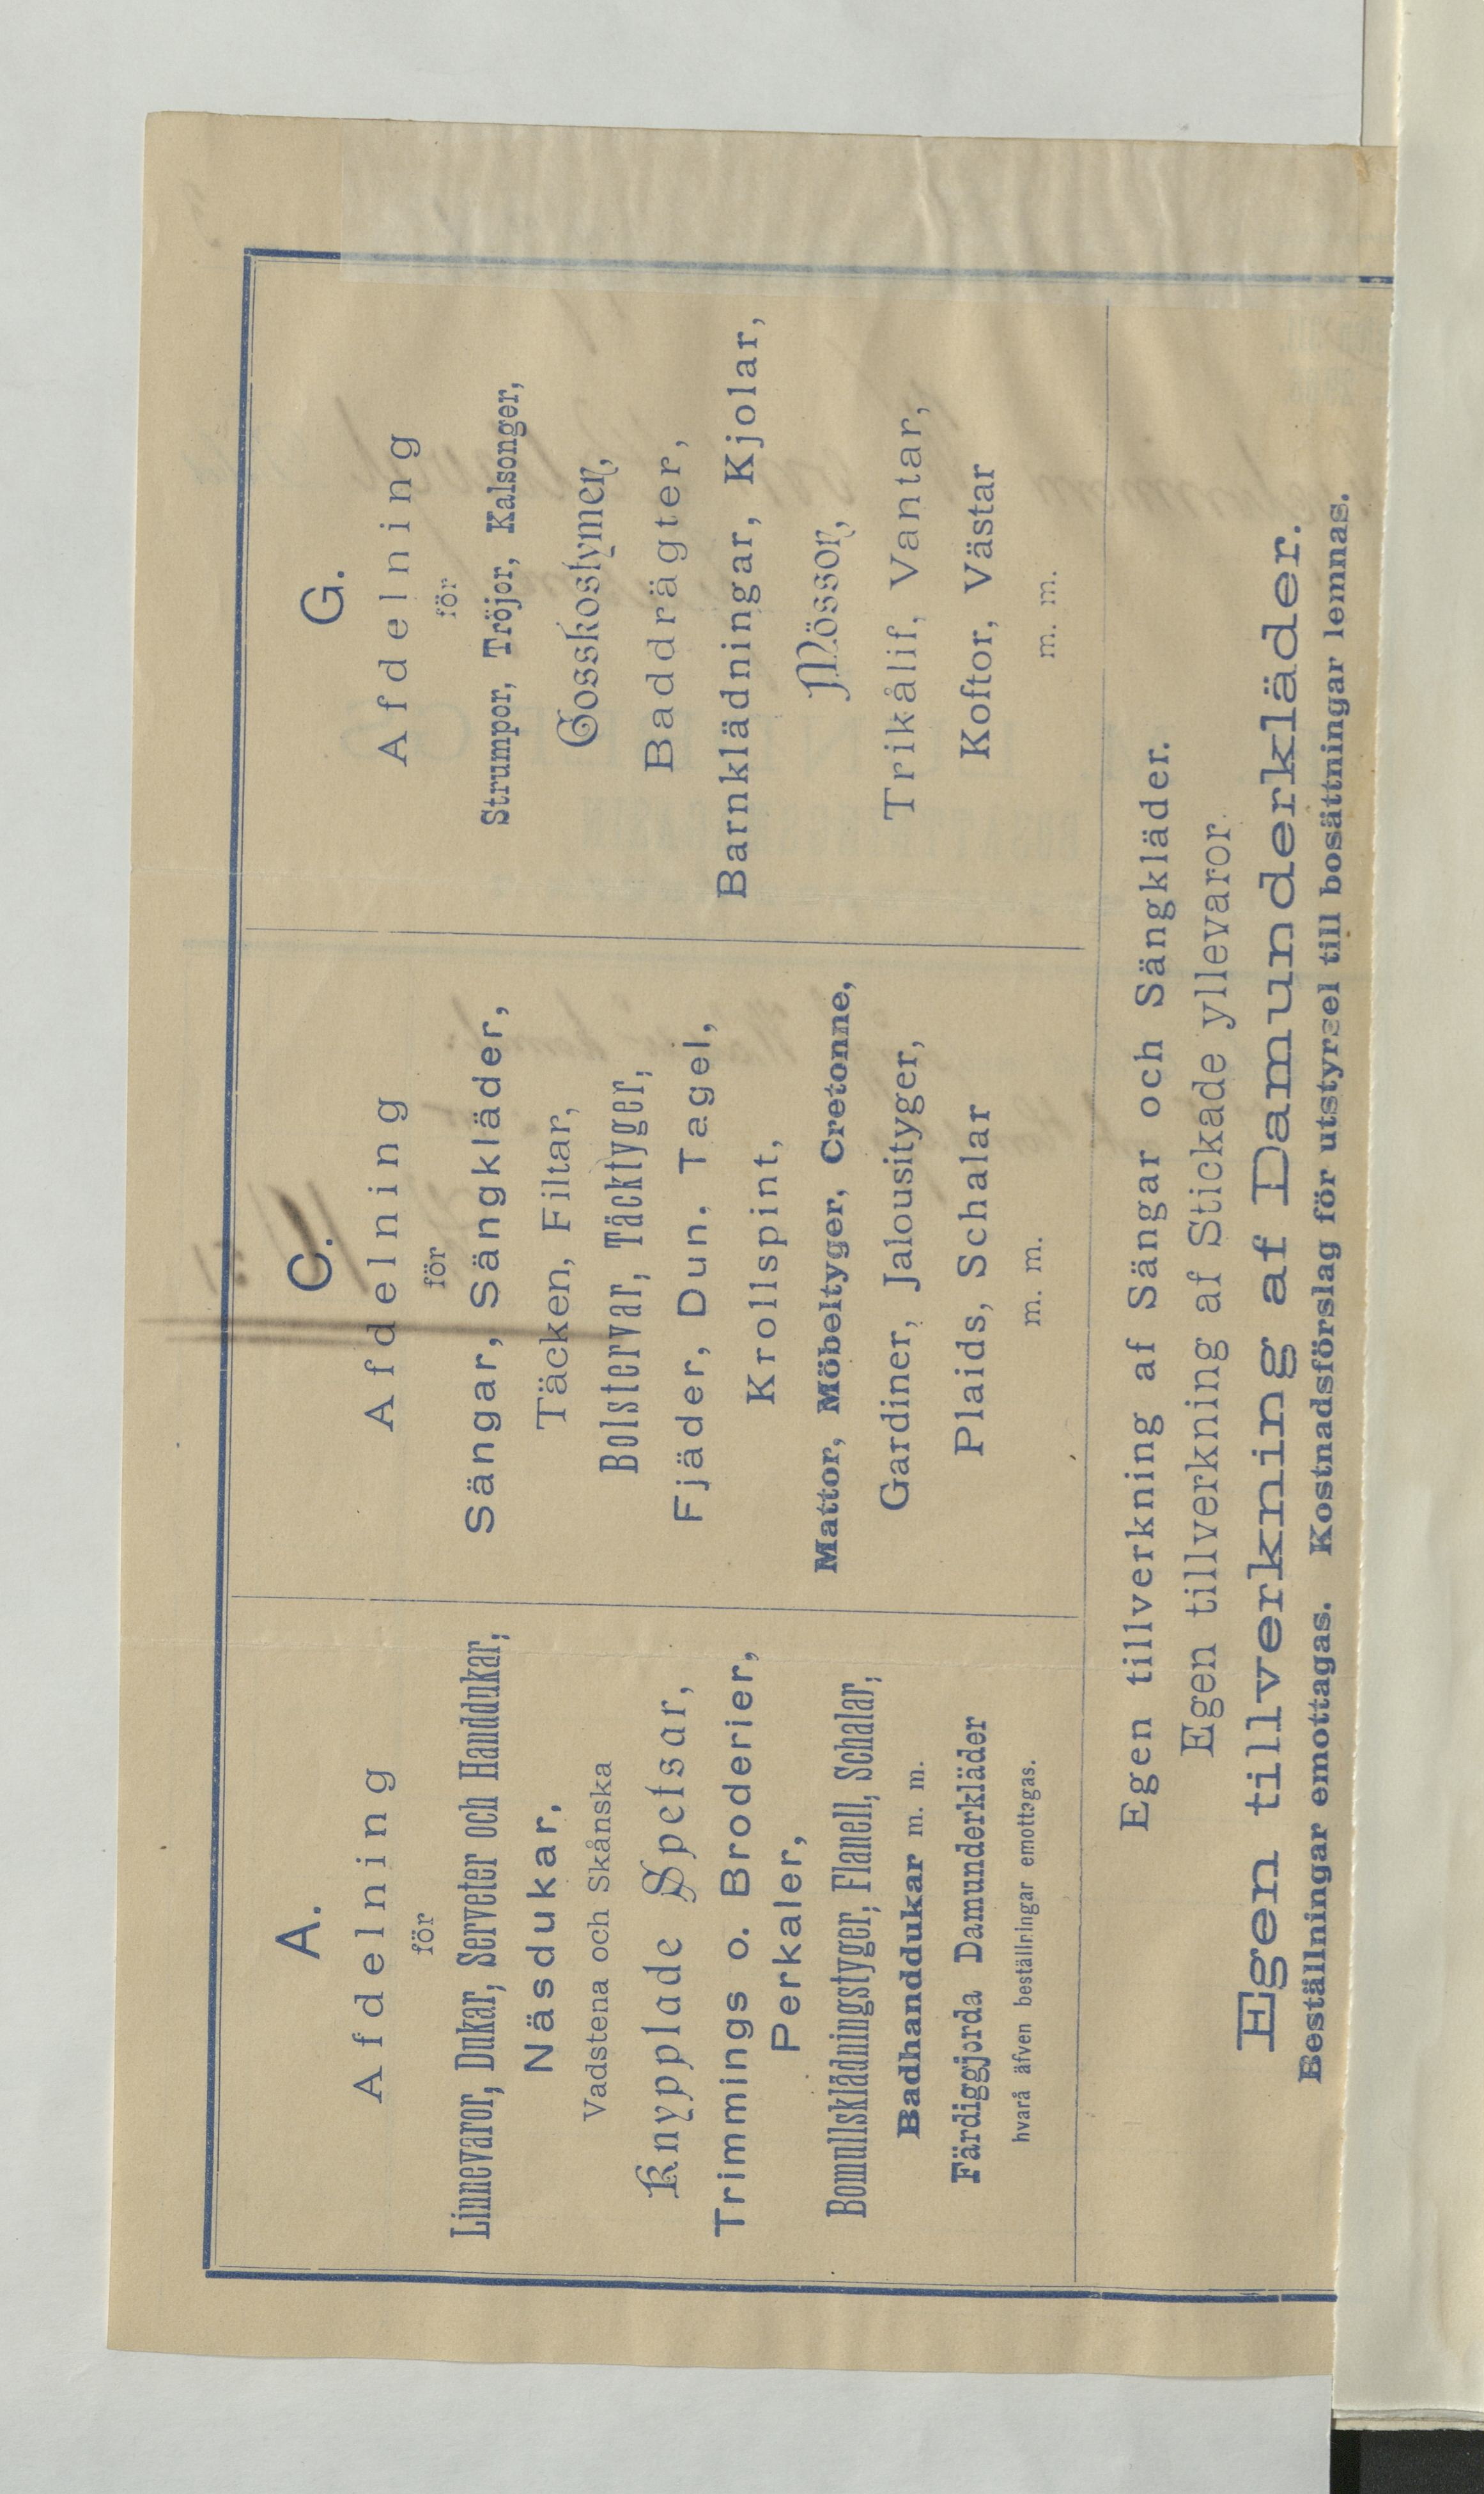 A.
Afdelning
för
Linnevaror, Dukar, Serveter och Handdukar,
Näsdukar,
Vadstena och Skånska
Knypplade Spetsar,
Trimmings o. Broderier,
Perkaler,
Bomullsklädningstyger, Flanell, Schalar,
Badhanddukar m. m.
Färdiggjorda Damunderkläder
hvarå äfven beställningar emottagas.
C.
Afdelning
för
Sängar, Sängkläder,
Täcken, Filtar,
Bolstervar, Täcktyger,
Fjäder, Dun, Tagel,
Krollspint,
Mattor, Möbeltyger, Cretonne,
Gardiner, Jalousityger,
Plaids, Schalar
m. m.
G.
Afdelning
för
Strumpor, Tröjor, Kalsonger,
Gosskostymer,
Baddrägter,
Barnklädningar, Kjolar,
Mössor,
Trikålif, Vantar,
Koftor, Västar
m. m.
Egen tillverkning af Sängar och Sängkläder.
Egen tillverkning af Stickade yllevaror.
Egen tillverkning af Damunderkläder.
Beställningar emottagas. Kostnadsförslag för utstyrsel till bosättningar lemnas.